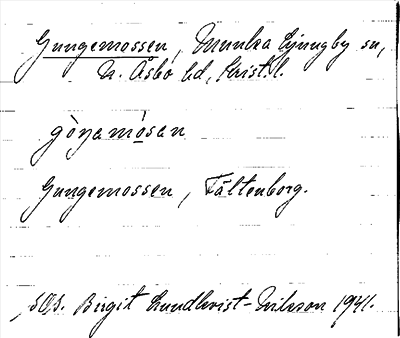 Gungemossen, Munka Ljungby sn,
N. Åsbo hd, Krist. l.
gòŋemósan
Gungemossen, Fältenborg.
Birgit Lundkvist-Nilsson 1941.